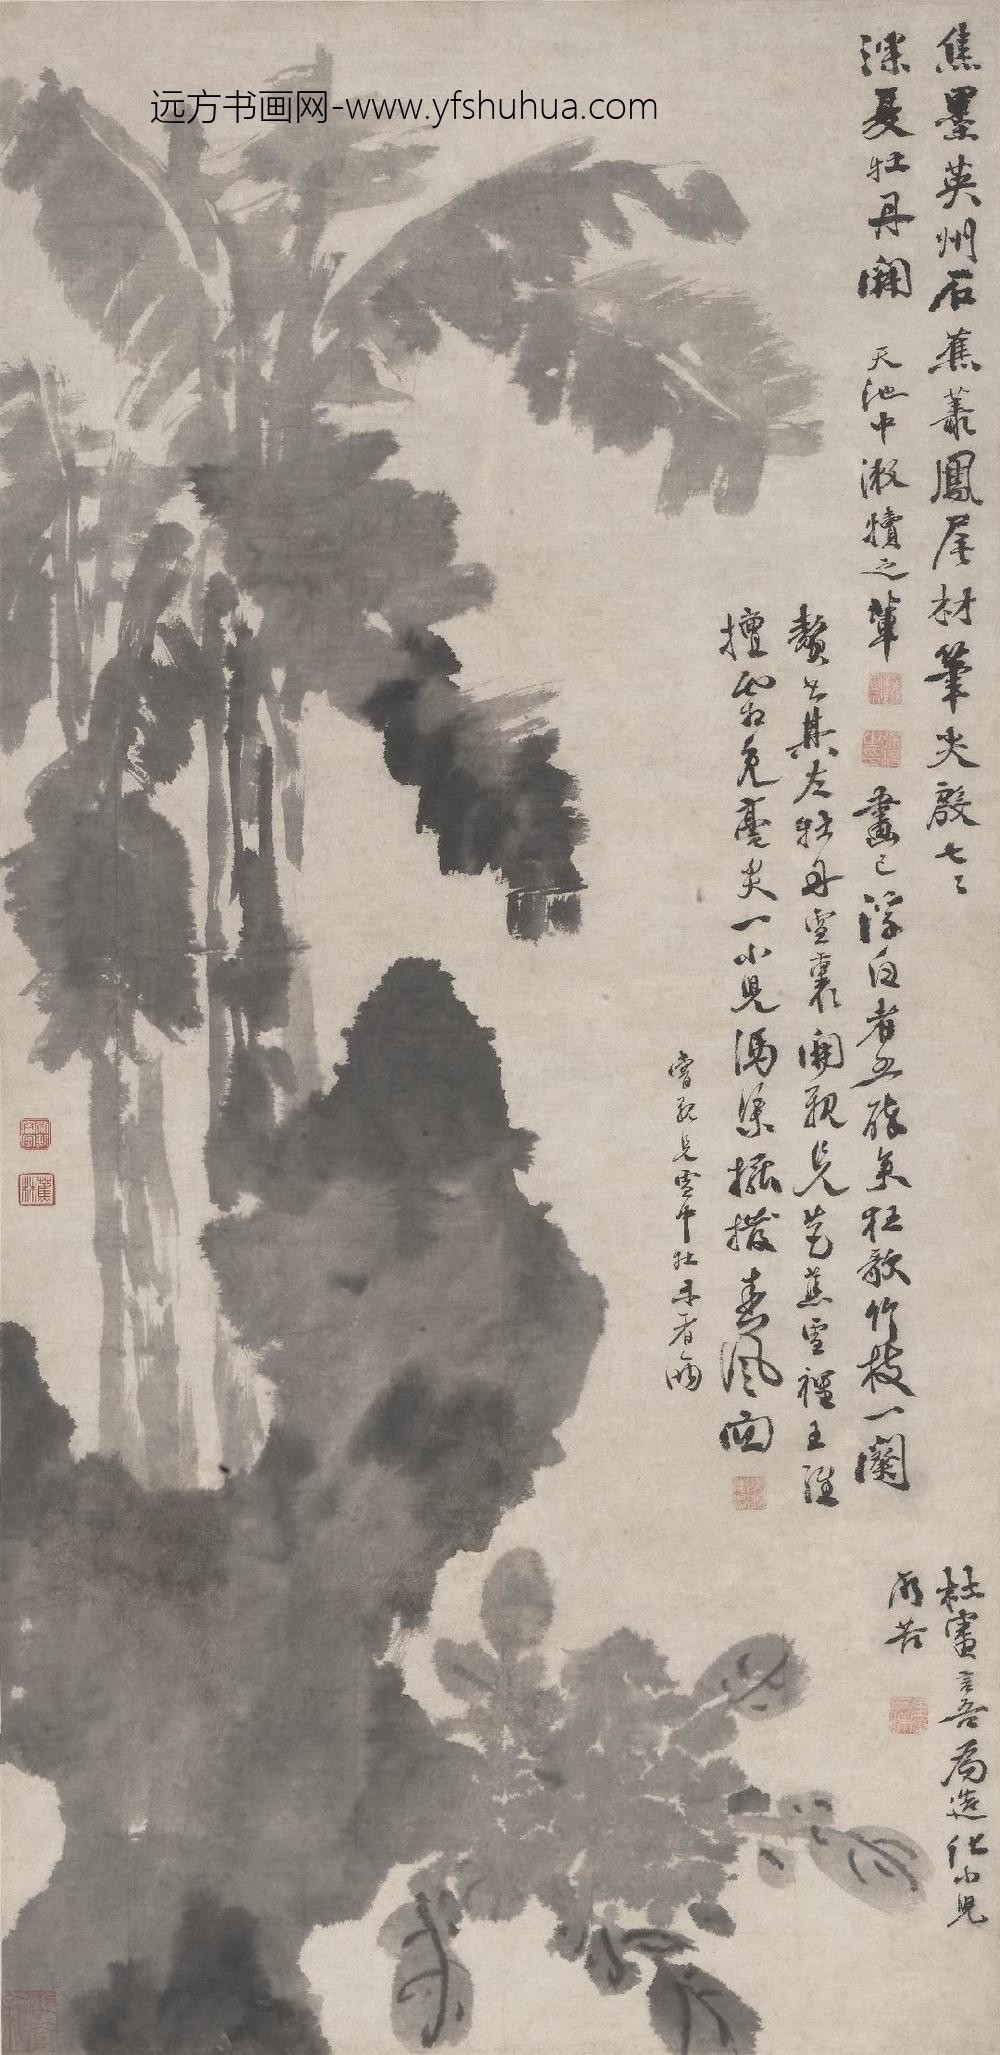 远方书画网-www.yfshuhua.com
焦墨英州石蕉叢鳳尾材筆尖
深夏牡丹開
天池中漱犢之輩
畫已浮白者五醉矣狂歌竹枝一闌
贅書其左牡丹雪裏開親見芭蕉雪裡王維
擅霜兔毫尖一小兒馮渠擺撥春風面
嘗親見雪中牡丹者兩
杜審言吾為造化小兒
所苦
蕉林